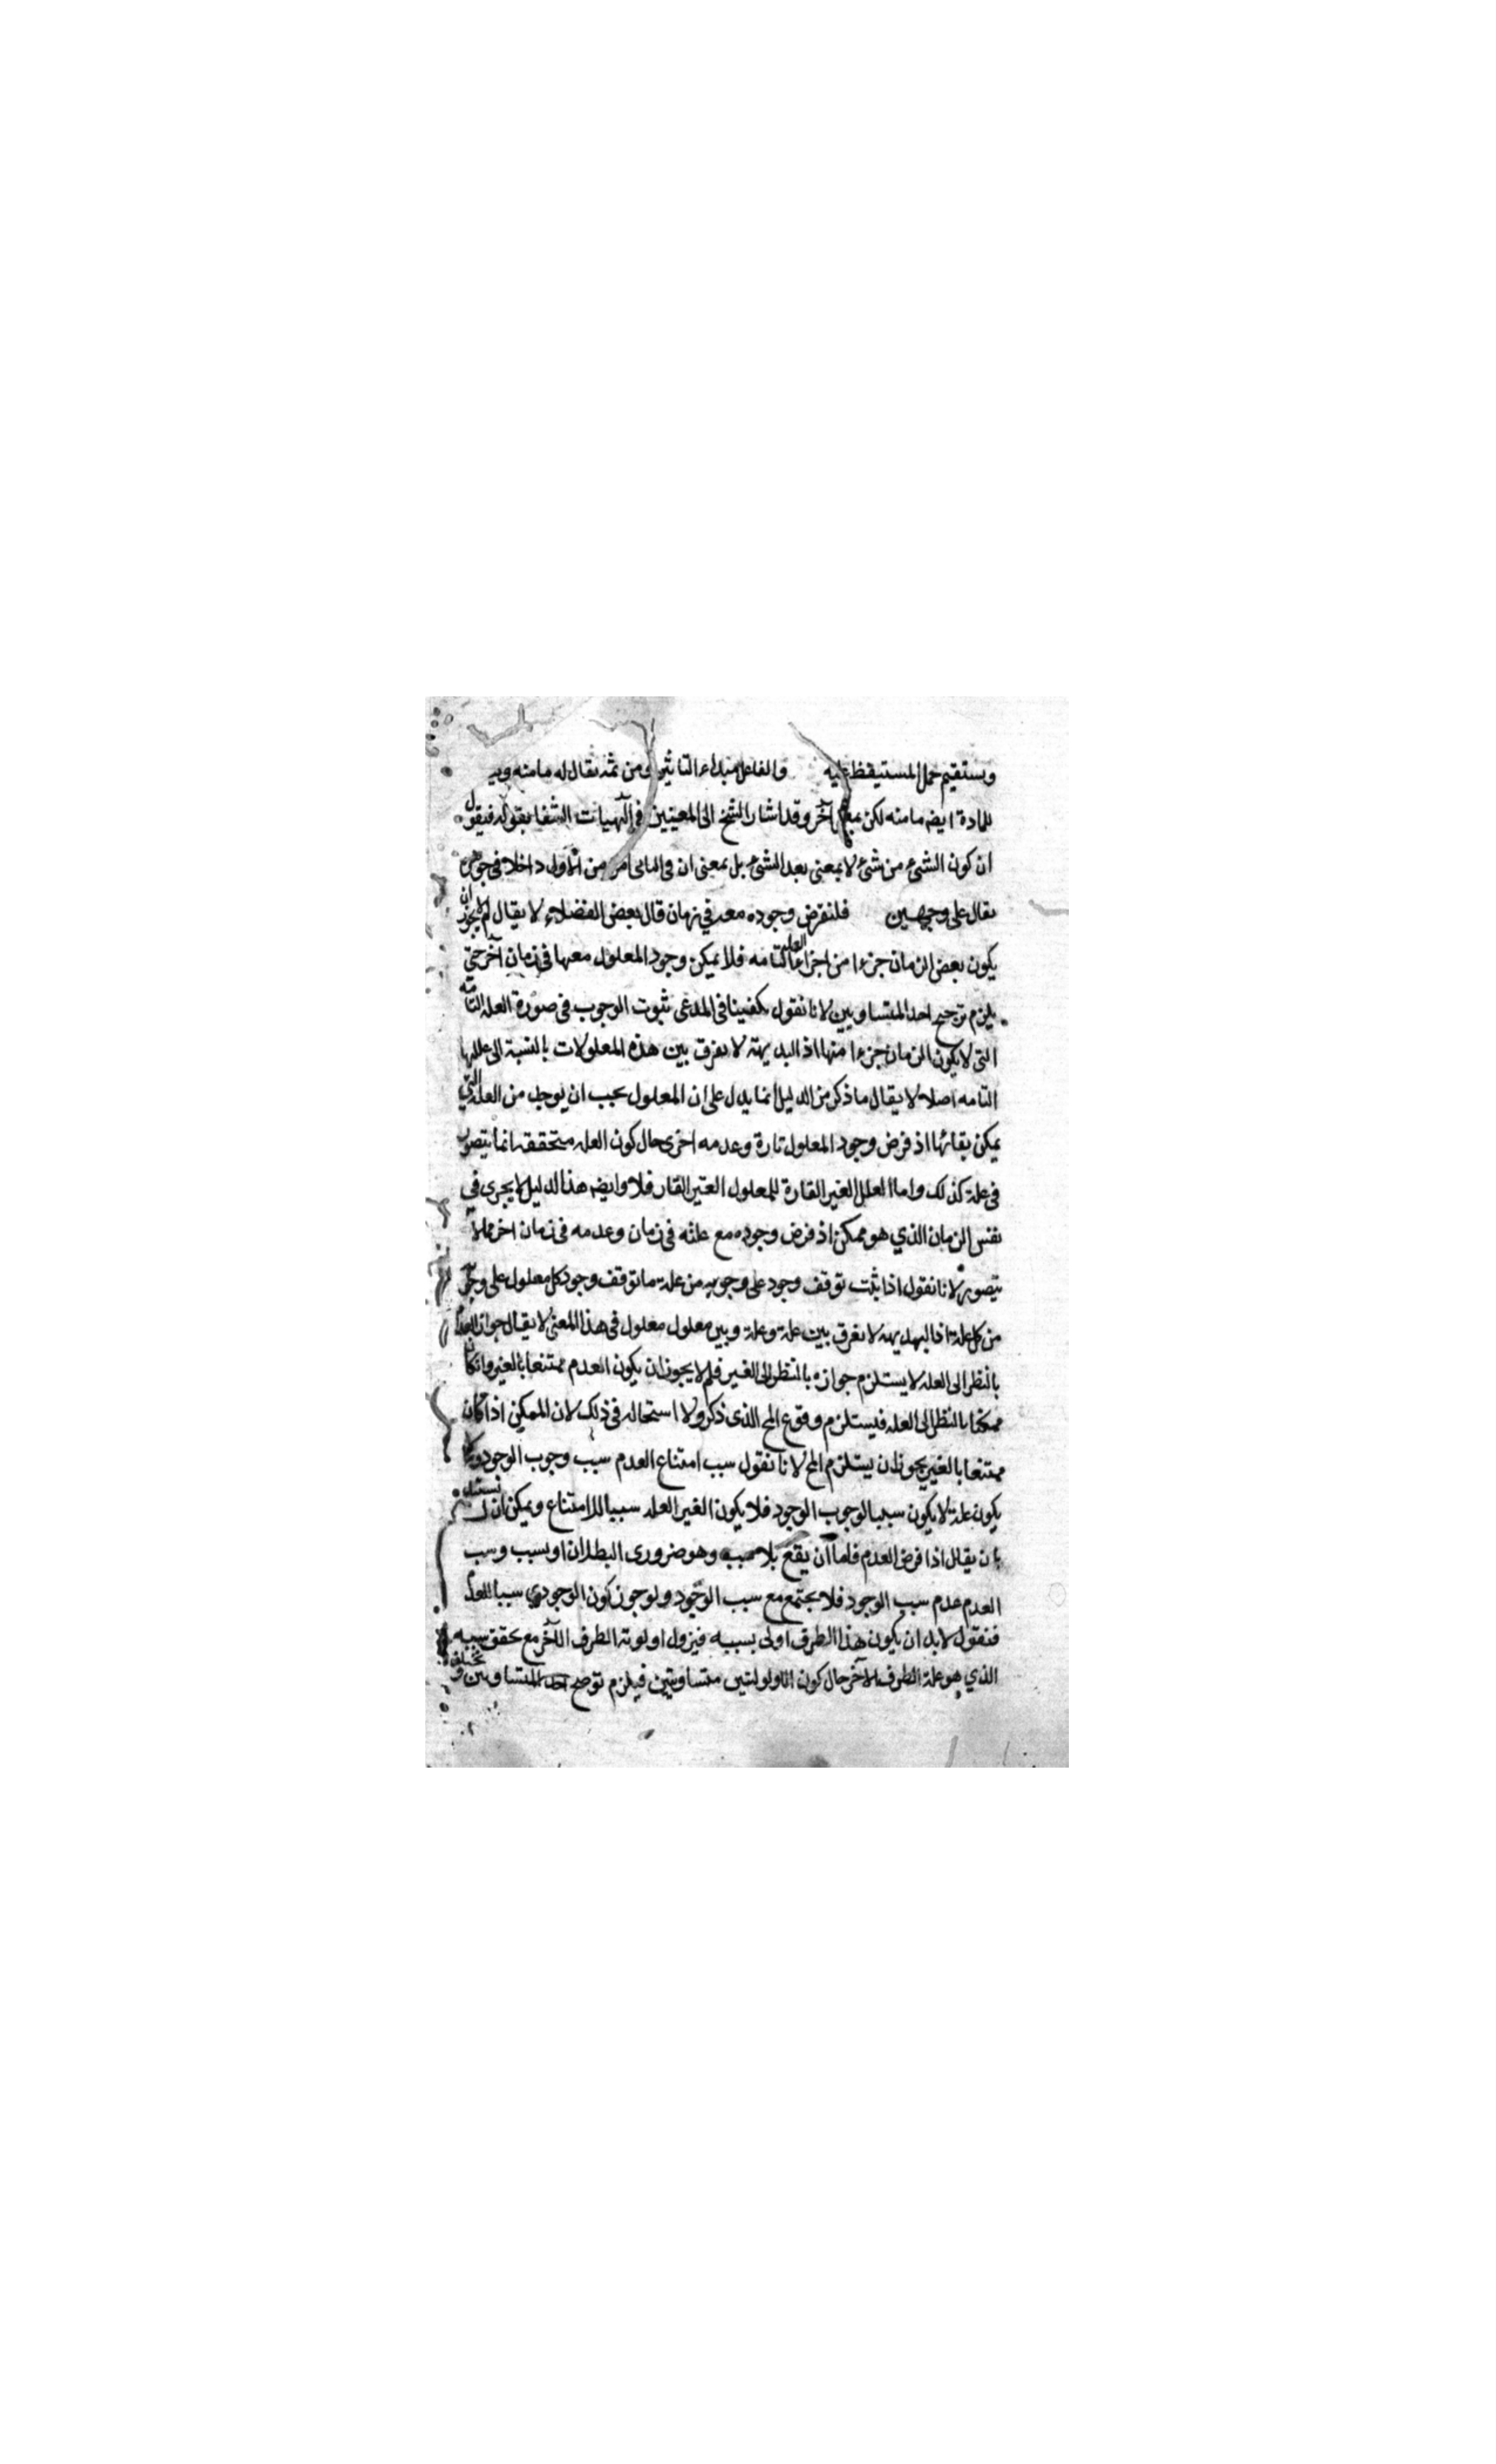 ويستقيم حمل المستيقظ عليه والفاعل مبداء التاثير ومن ثمة يقال له ما منه
للمادة ايضه ما منه لكن بمعنى آخر وقد اشار الشيخ الى المعينين في آلهيات الشفا بقوله فيقول
ان كون الشئ من شئ لا بمعنى بعد الشئ بل بمعنى ان في الثانى امر من الاول داخلا في جوهره
يقال على وجهين فلنفرض وجوده معه في زمان قال بعض الفضلاء لا يقال لم لا يجوز ان
يكون بعض الزمان جزءا من اجزاء العلة التامه فلا يمكن وجود المعلول معها في زمان آخر حتى
يلزم ترجيح احد المتساويين لانا نقول يكفينا في المدعى ثبوت الوجوب في صورة العله التامه
التى لا يكون الزمان جزءا منها اذ البديهة لا يفرق بين هذه المعلولات بالنسبة الى عللها
التامه اصلا لا يقال ما ذكر من الدليل انما يدل على ان المعلول يجب ان يوجد من العله التي
يمكن بقائها اذ فرض وجود المعلول تارة وعدمه اخرى حال كون العله متحققه انما يتصور
في علة كذلك واما العلل الغير القارة للمعلول الغير القار فلا وايضه هذا الدليل لا يجرى في
نفس الزمان الذي هو ممكن اذ فرض وجوده مع علته في زمان وعدمه في زمان اخر مما لا
يتصور لانا نقول اذا ثبت توقف وجود على وجوبه من علة ما توقف وجود كل معلول على وجوبه
من كل علة اذ البديهه لا يفرق بين علة وعلة وبين معلول معلول في هذا المعنى لا يقال جواز العدم
بالنظر الى العله لا يستلزم جوازه بالنظر الى الغير فلم لا يجوز ان يكون العدم ممتنعا بالغير وان كان
ممكنا بالنظر الى العله فيستلزم وقوع المح الذى ذكر ولا استحاله في ذلك لان الممكن اذا كان
ممتنعا بالغير يجوز ان يستلزم المح لانا نقول سبب امتناع العدم سبب وجوب الوجود
يكون علة لا يكون سببا لوجوب الوجود فلا يكون الغير العله سببا للامتناع ويمكن ان يستدل
بان يقال اذا فرض العدم فاما ان يقع بلا سبب وهو ضرورى البطلان او بسبب وسبب
العدم عدم سبب الوجود فلا يجتمع مع سبب الوجود ولو جوز كون الوجودي سببا للعدم
فنقول لا بد ان يكون هذا الطرف اولى بسببه فيزول اولوية الطرف الآخر مع تحقق سببه
الذي هو علة الطرف الآخر حال كون الاولولتين متساويتين فيلزم ترجيح احد المتساويين